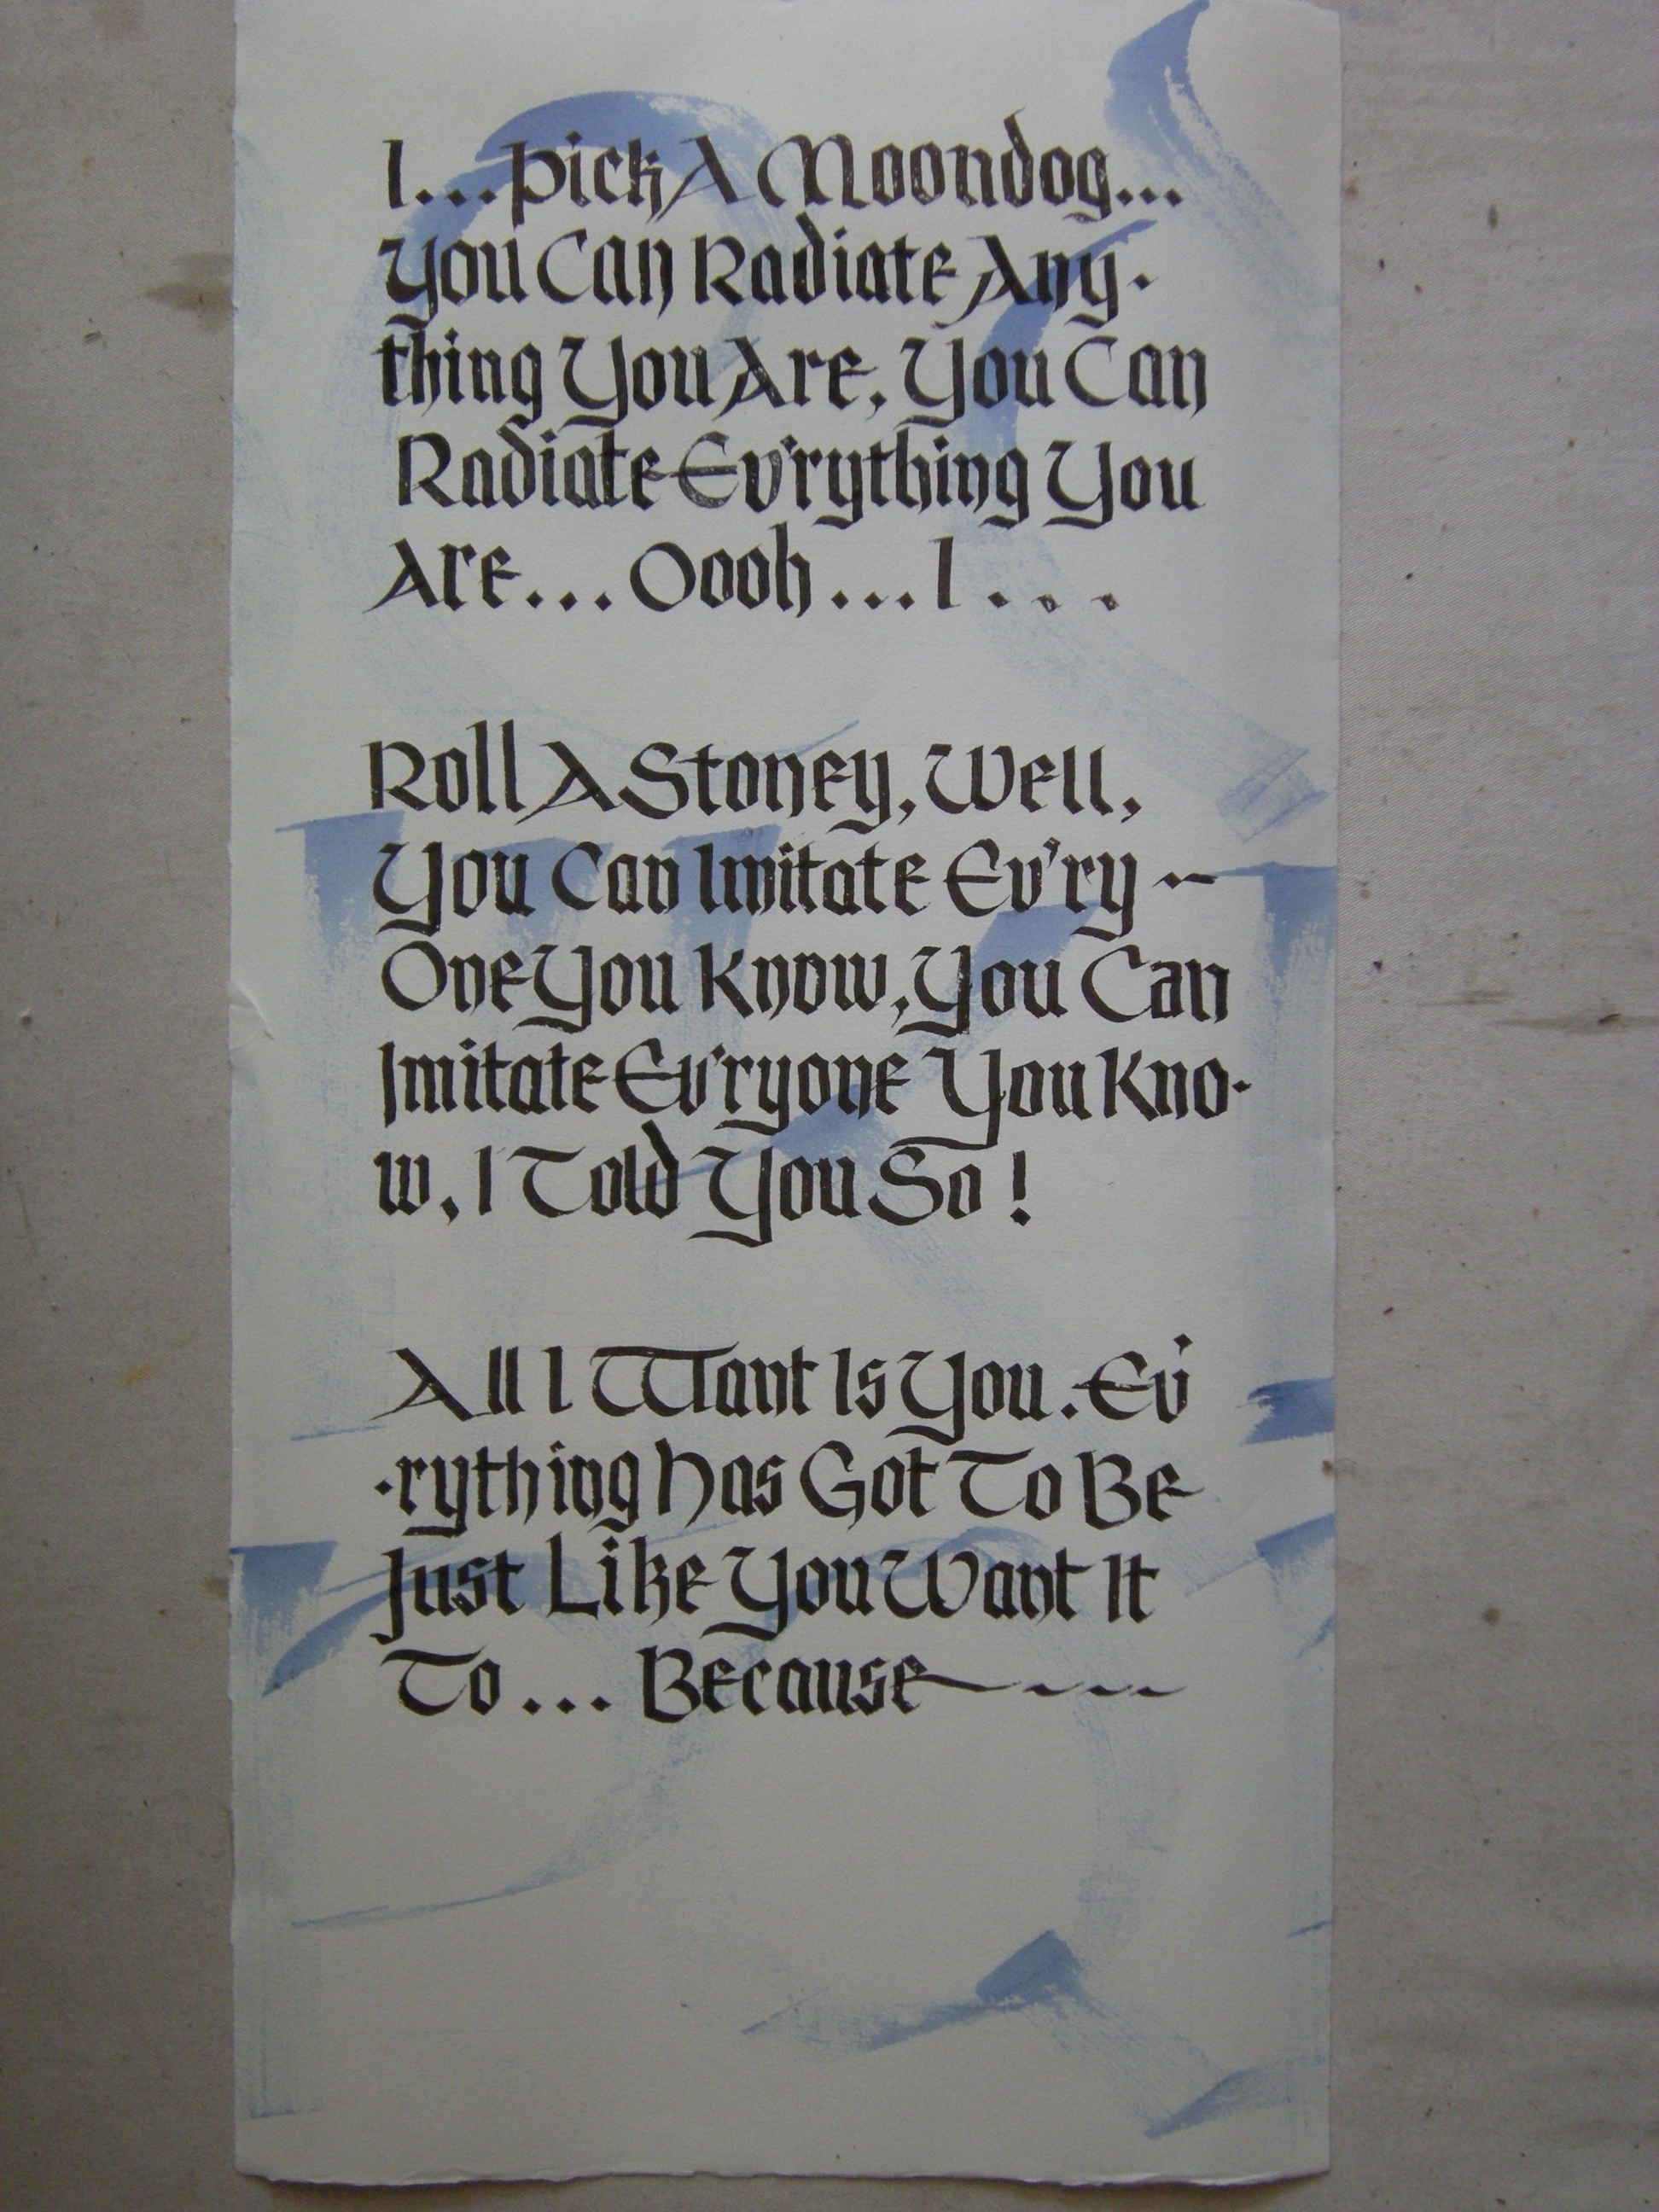 I...Pick A Moondog...
You Can Radiate Any-
thing You Are, You Can
Radiate Ev'rything You
Are... Oooh...I...
Roll A Stoney, Well,
You Can Imitate Ev'ry-
One You Know, You Can
Imitate Ev'ryone You Kno-
w, I Told You So!
All I Want Is You. Ev'
-rything Has Got To Be
Just Like You Want It
To... Because----